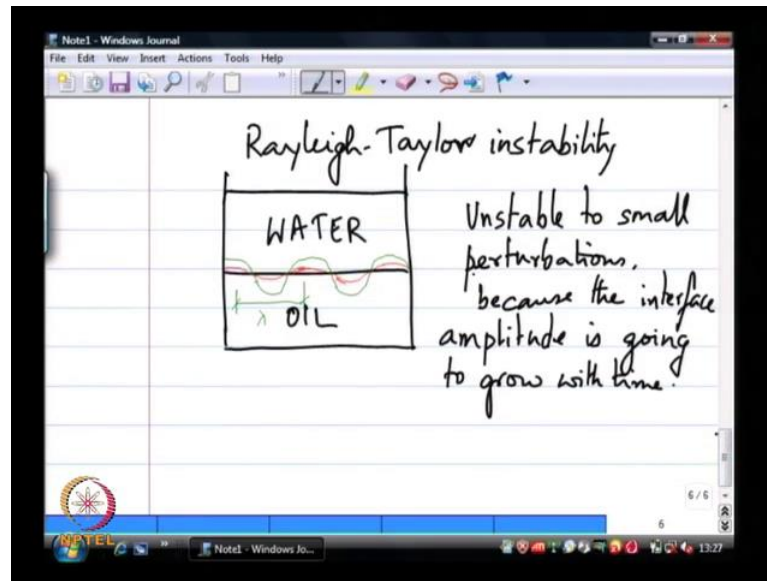 Note1 - Windows Journal
File Edit View Insert Actions Tools Help
Rayleigh-Taylor instability
WATER
λ OIL
Unstable to small
perturbations,
because the interface
amplitude is going
to grow with time.
6 / 6
6
NPTEL
Note1 - Windows Jo...
13:27